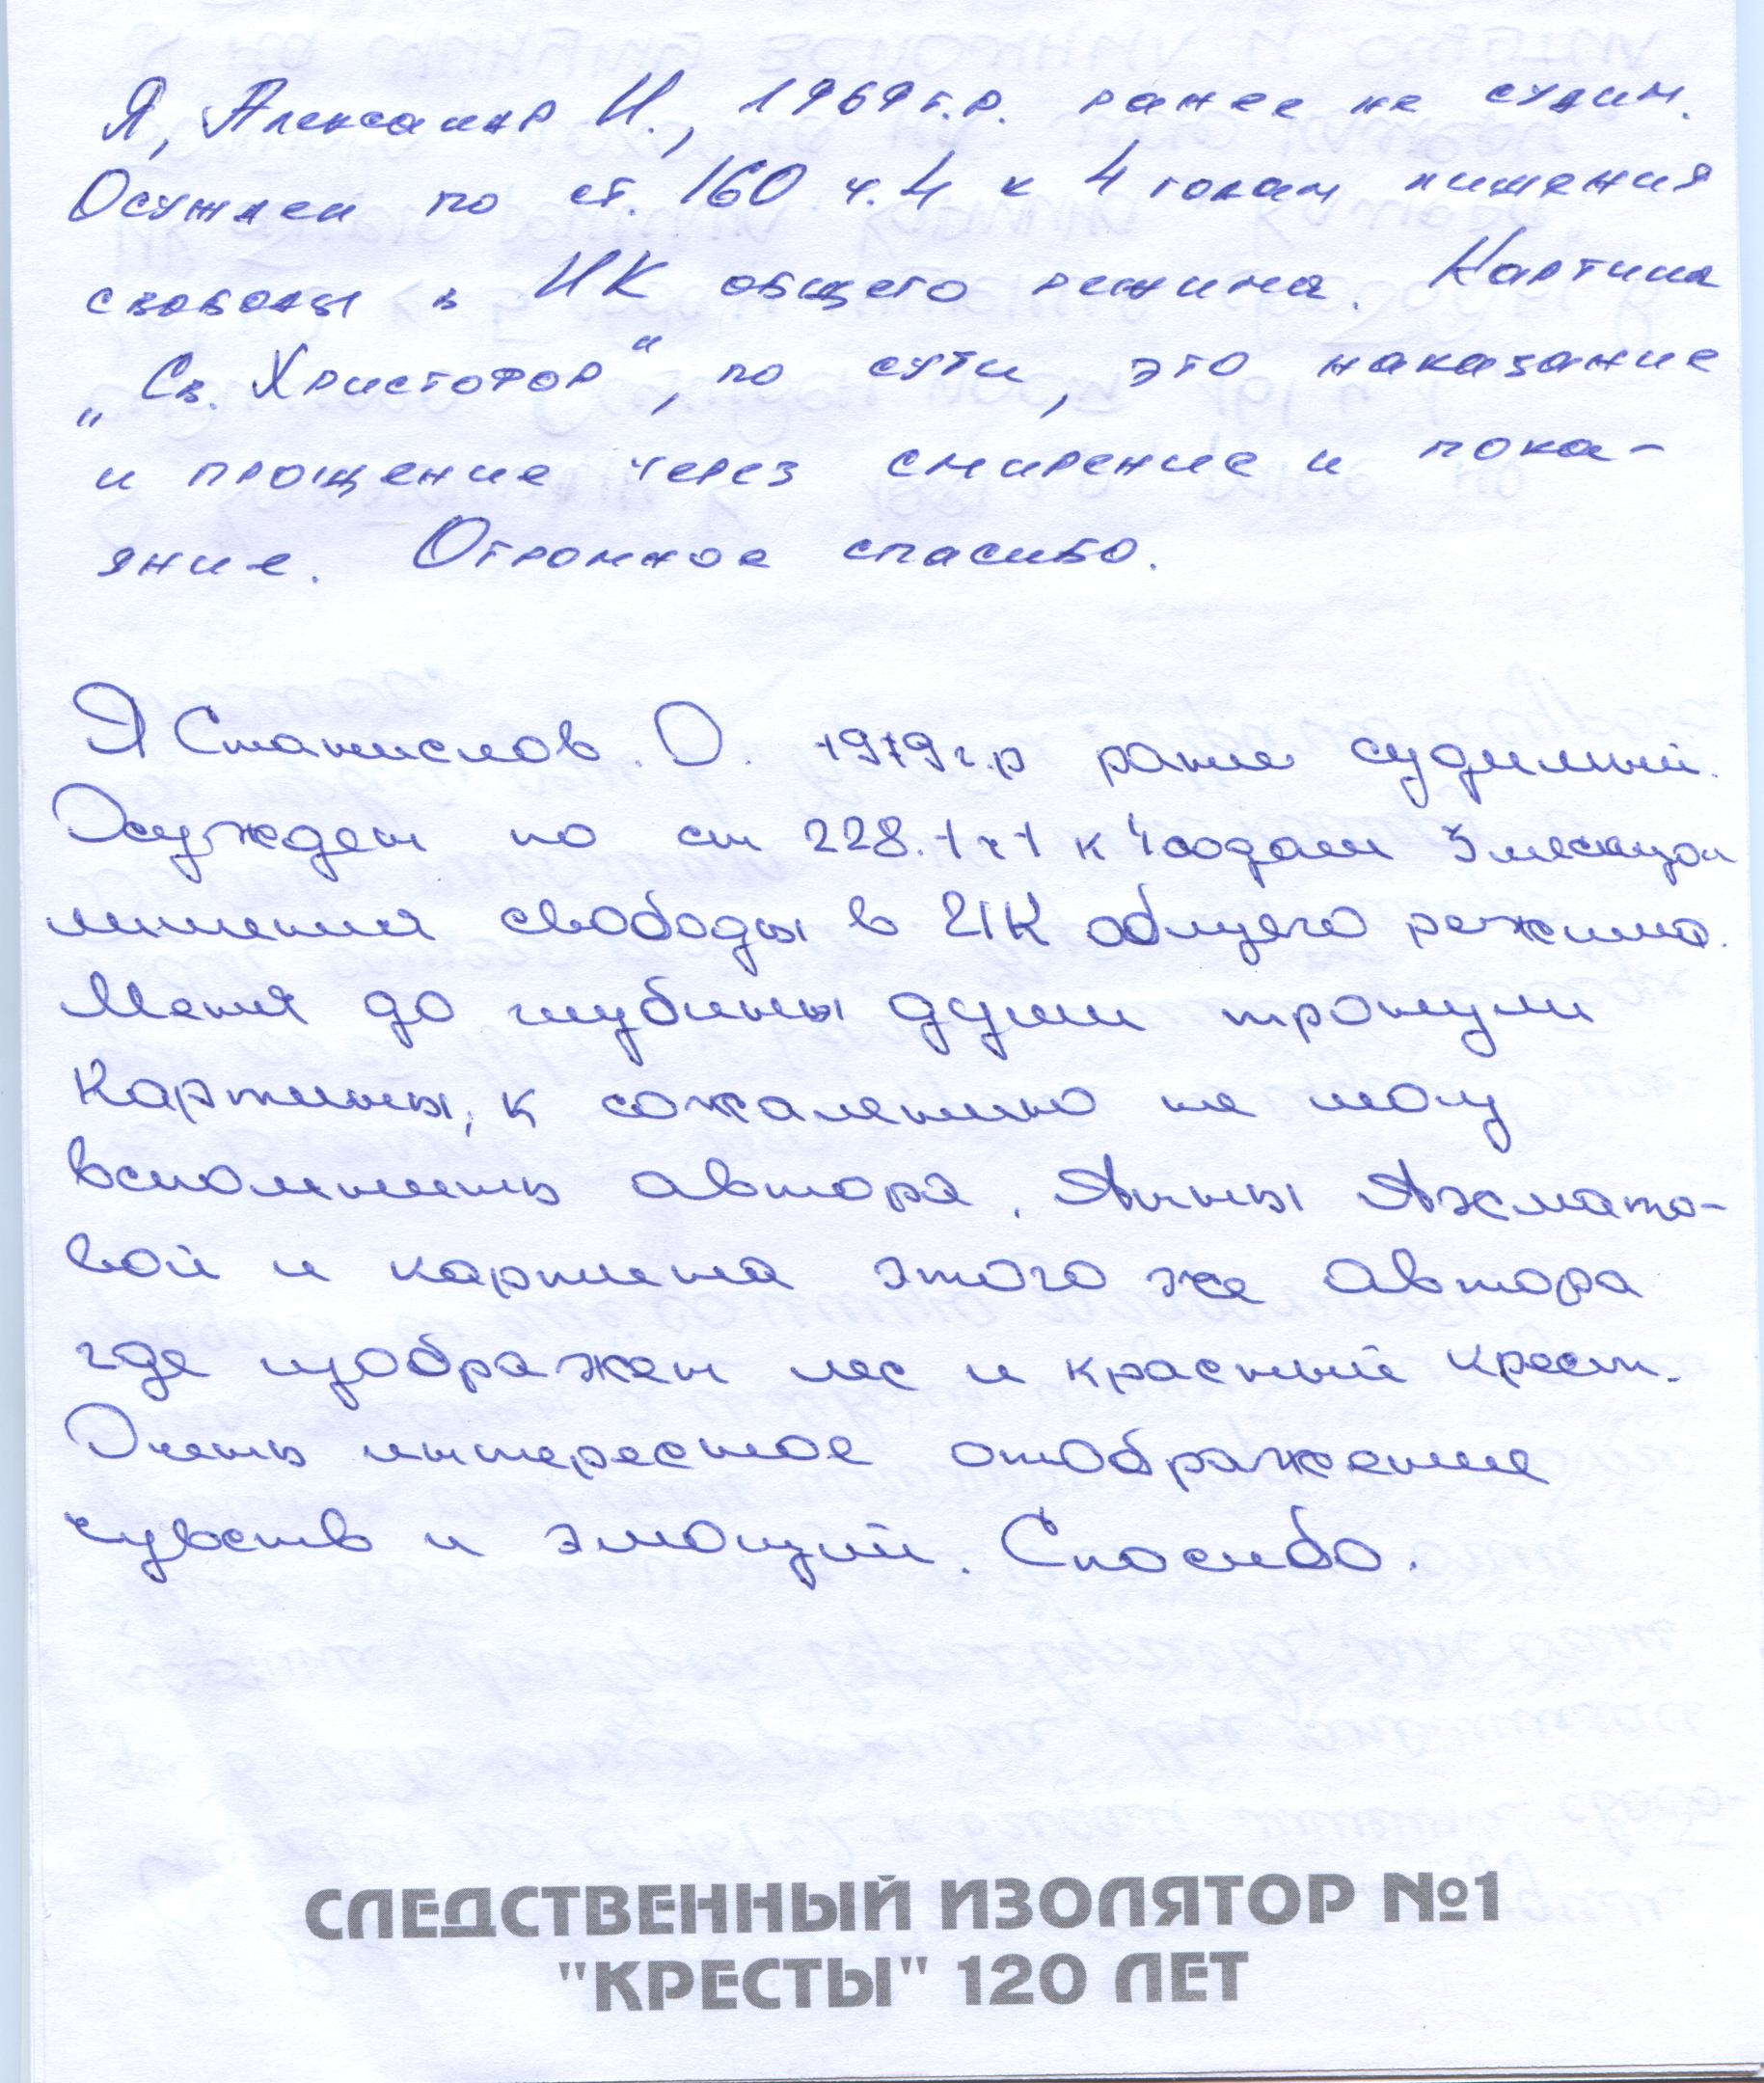 Я, Александр И., 1969 г.р. ранее не судим.
Осужден по ст. 160 ч. 4 к 4 годам лишения
свободы в ИК общего режима. Картина
„Св. Христофор“, по сути, это наказание
и прощение через смирение и пока-
яние. Огромное спасибо.
Я Станислов. О. 1979 г.р ранее судимый.
Осужден по ст 228.1 ч 1 к 4 годам 3 месяцам
лишения свободы в ИК общего режима.
Меня до глубины души тронули
Картины, к сожалению не могу
вспомнить автора, Анны Ахмато-
вой и картина этого же автора
где изображен лес и красный крест.
Очень интересное отображение
чувств и эмоций. Спасибо.
СЛЕДСТВЕННЫЙ ИЗОЛЯТОР №1
"КРЕСТЫ" 120 ЛЕТ